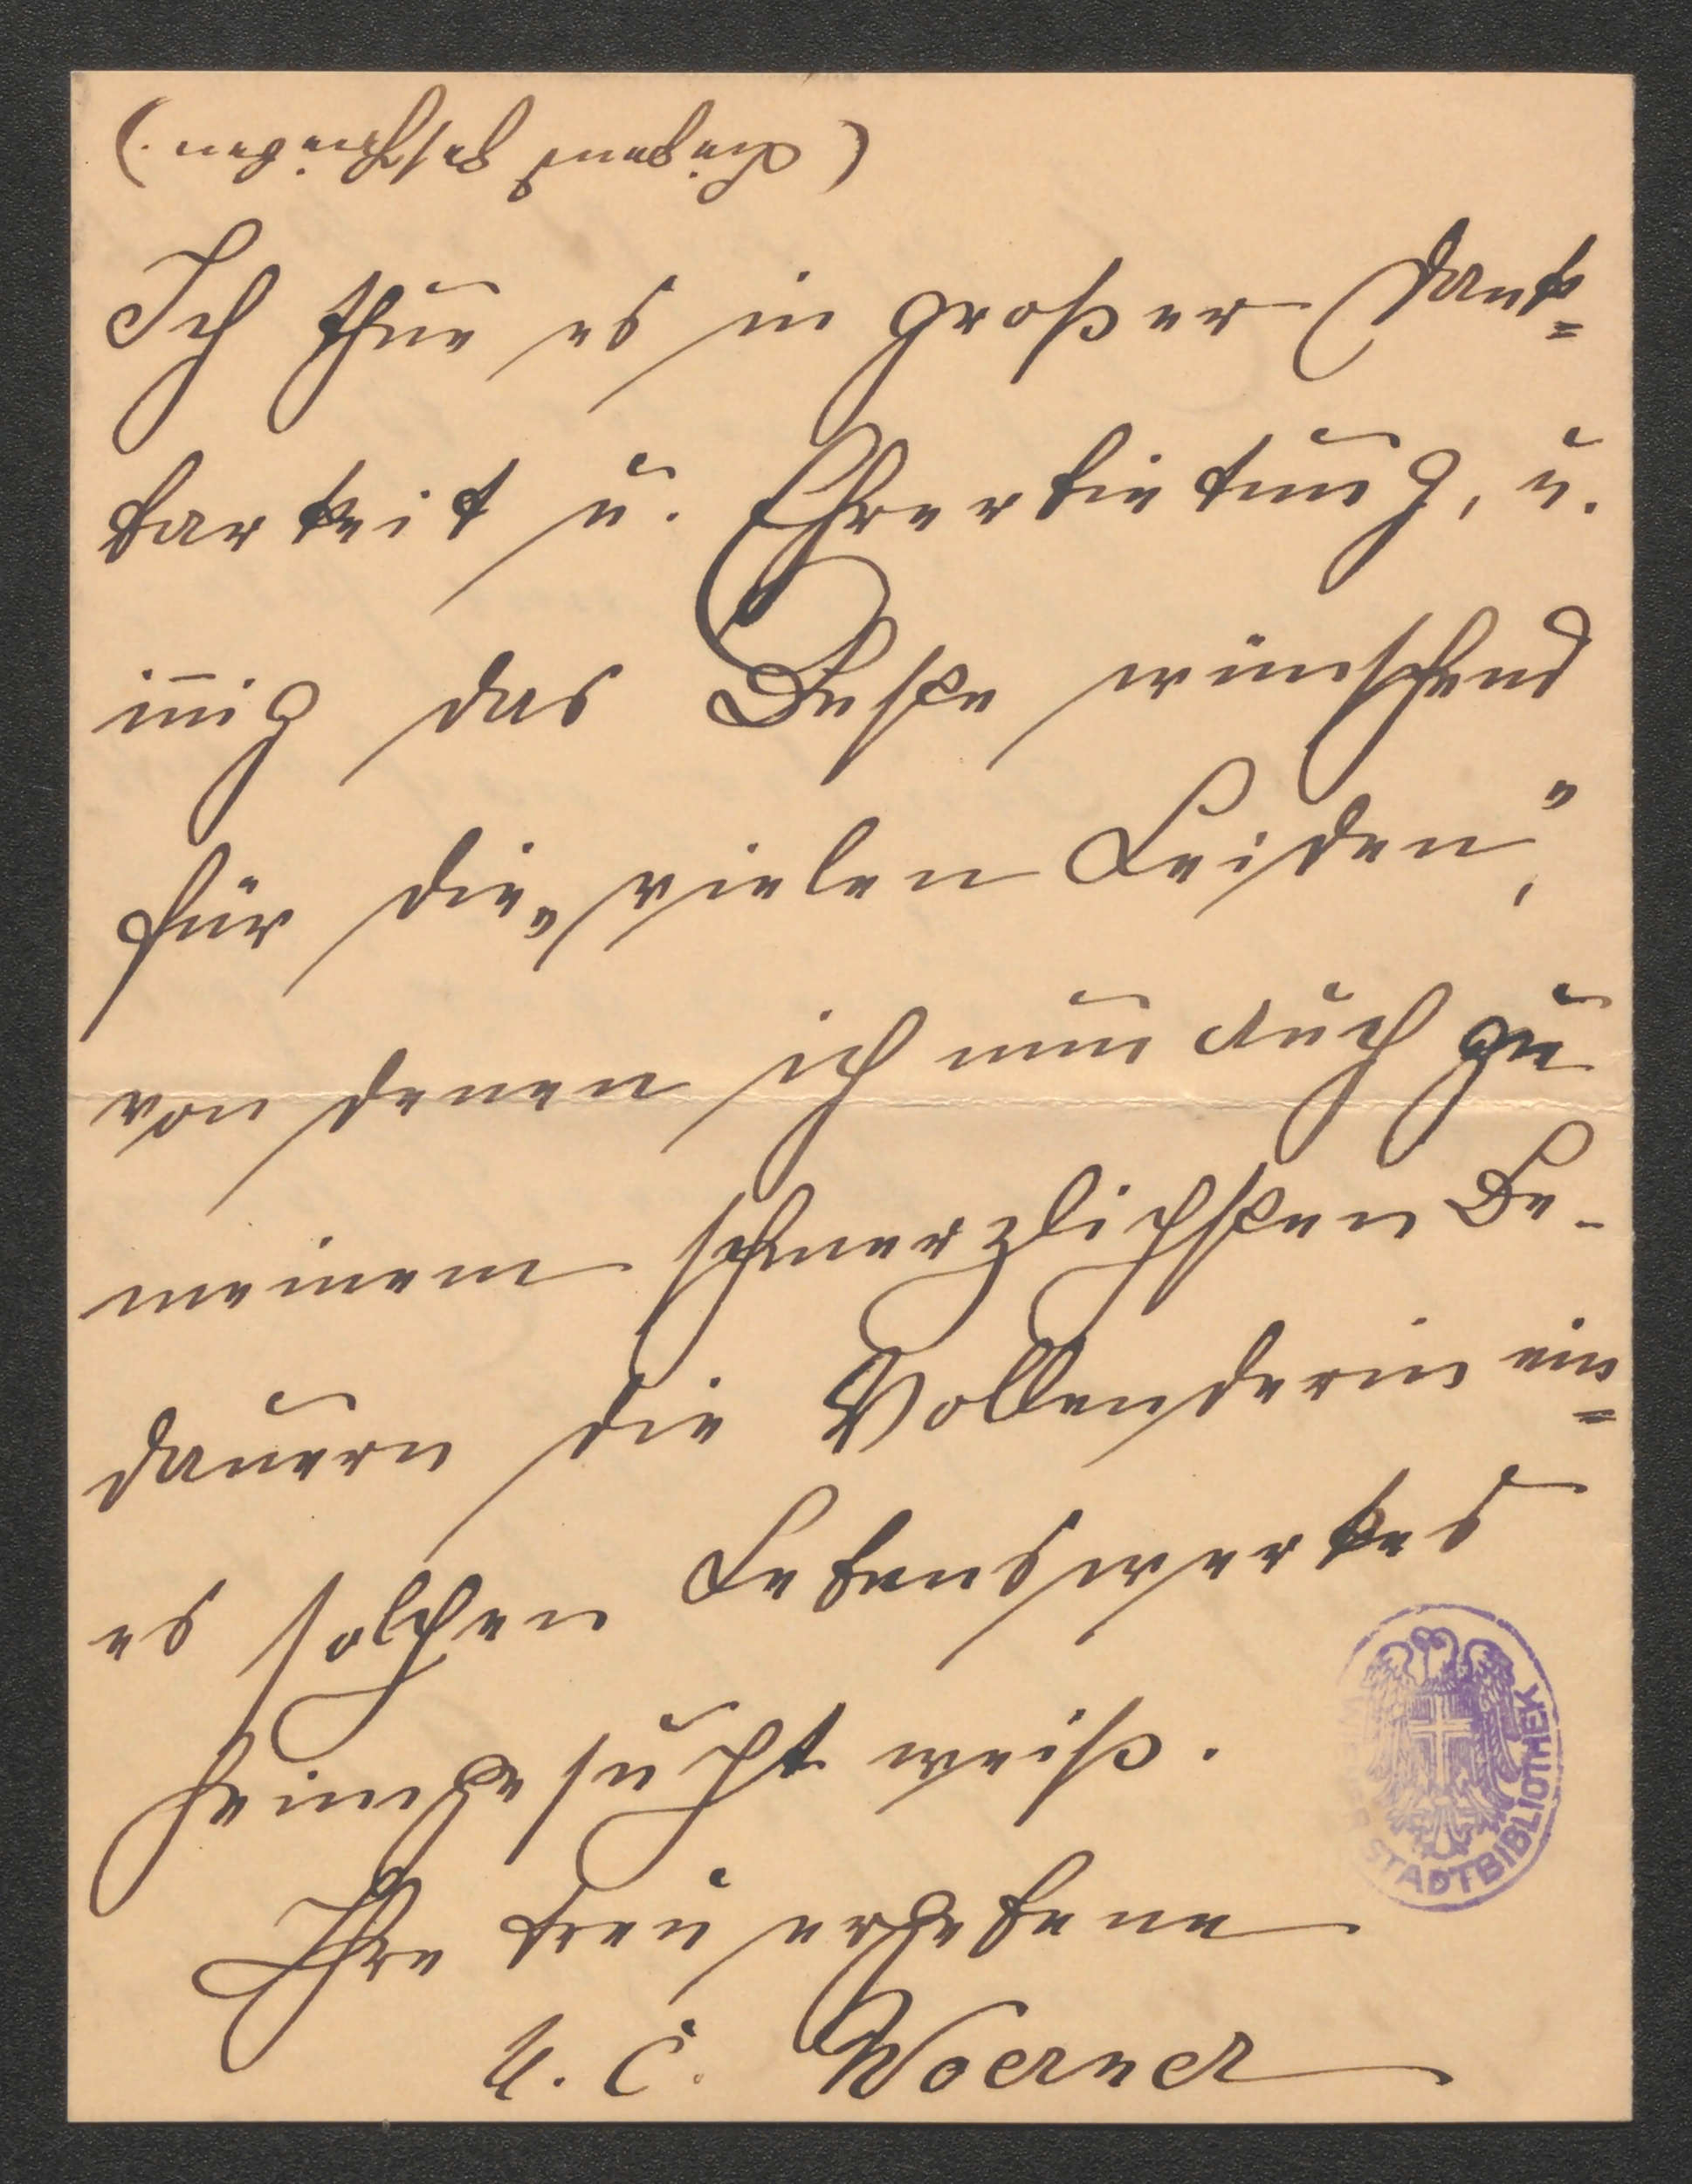 (Liegend geschrieben.)
Ich thue es in großer Dank=
barkeit u. Ehrerbietung, u.
in̅ig das Beste wünschend
für die „vielen Leiden“,
von denen ich nun auch zu
meinem schmerzlichsten Be-
dauern die Vollenderin ein=
es solchen Lebenswerkes
heimgesucht weiß.
Ihre treu ergebene
U. C. Woerner
STADTBIBLIOTHEK